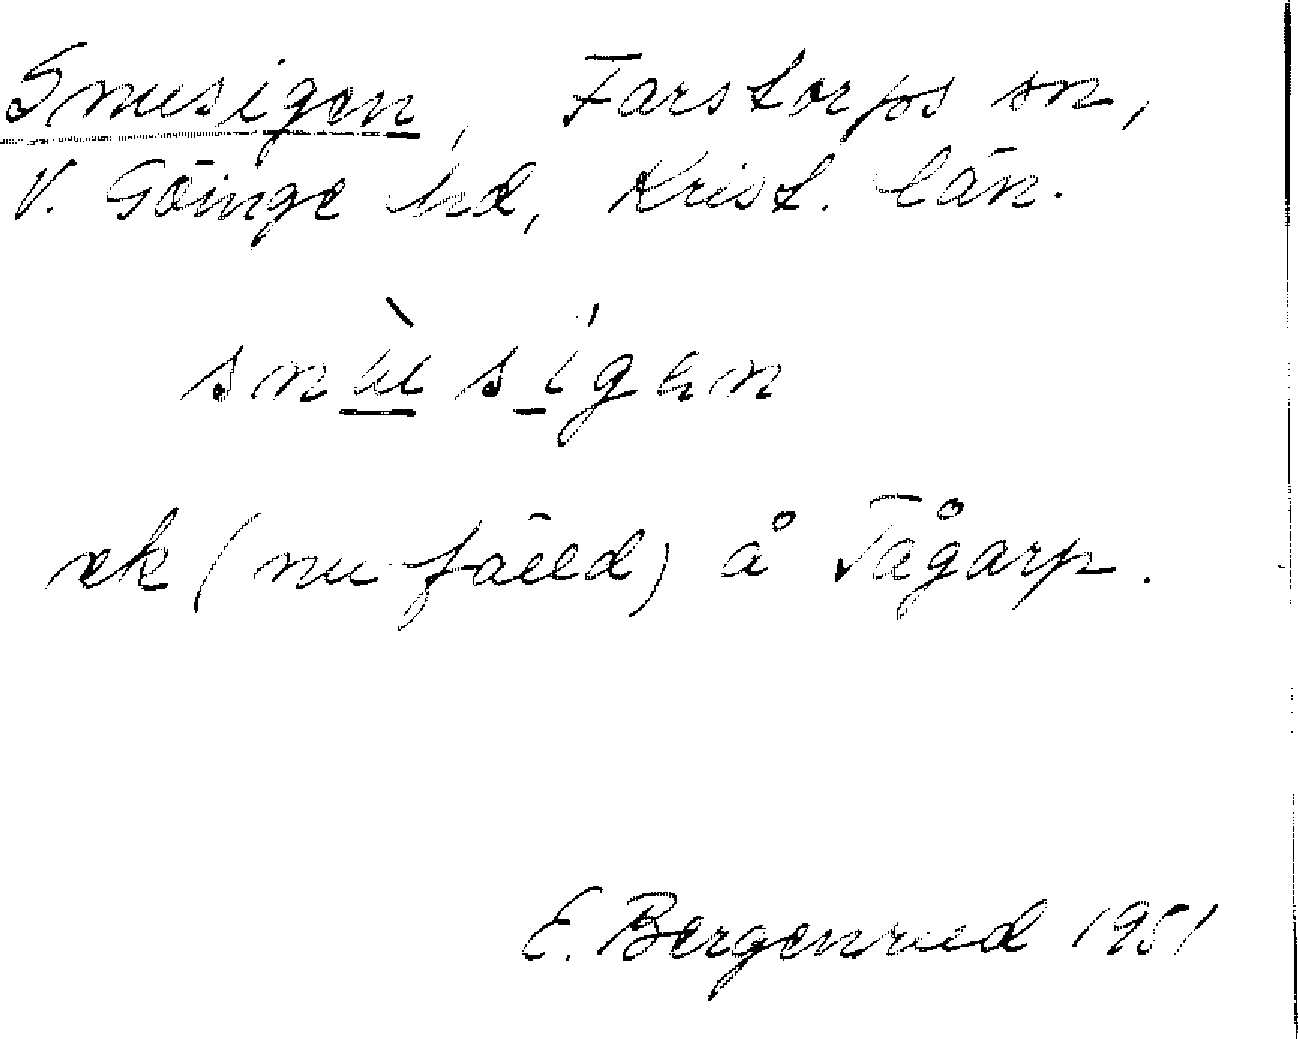 Snusigen, Farstorps sn,
V. Göinge hd, Krist. län.
snùsígen
ek (nu fälld) å Tågarp.
E. Bergenrud 1951